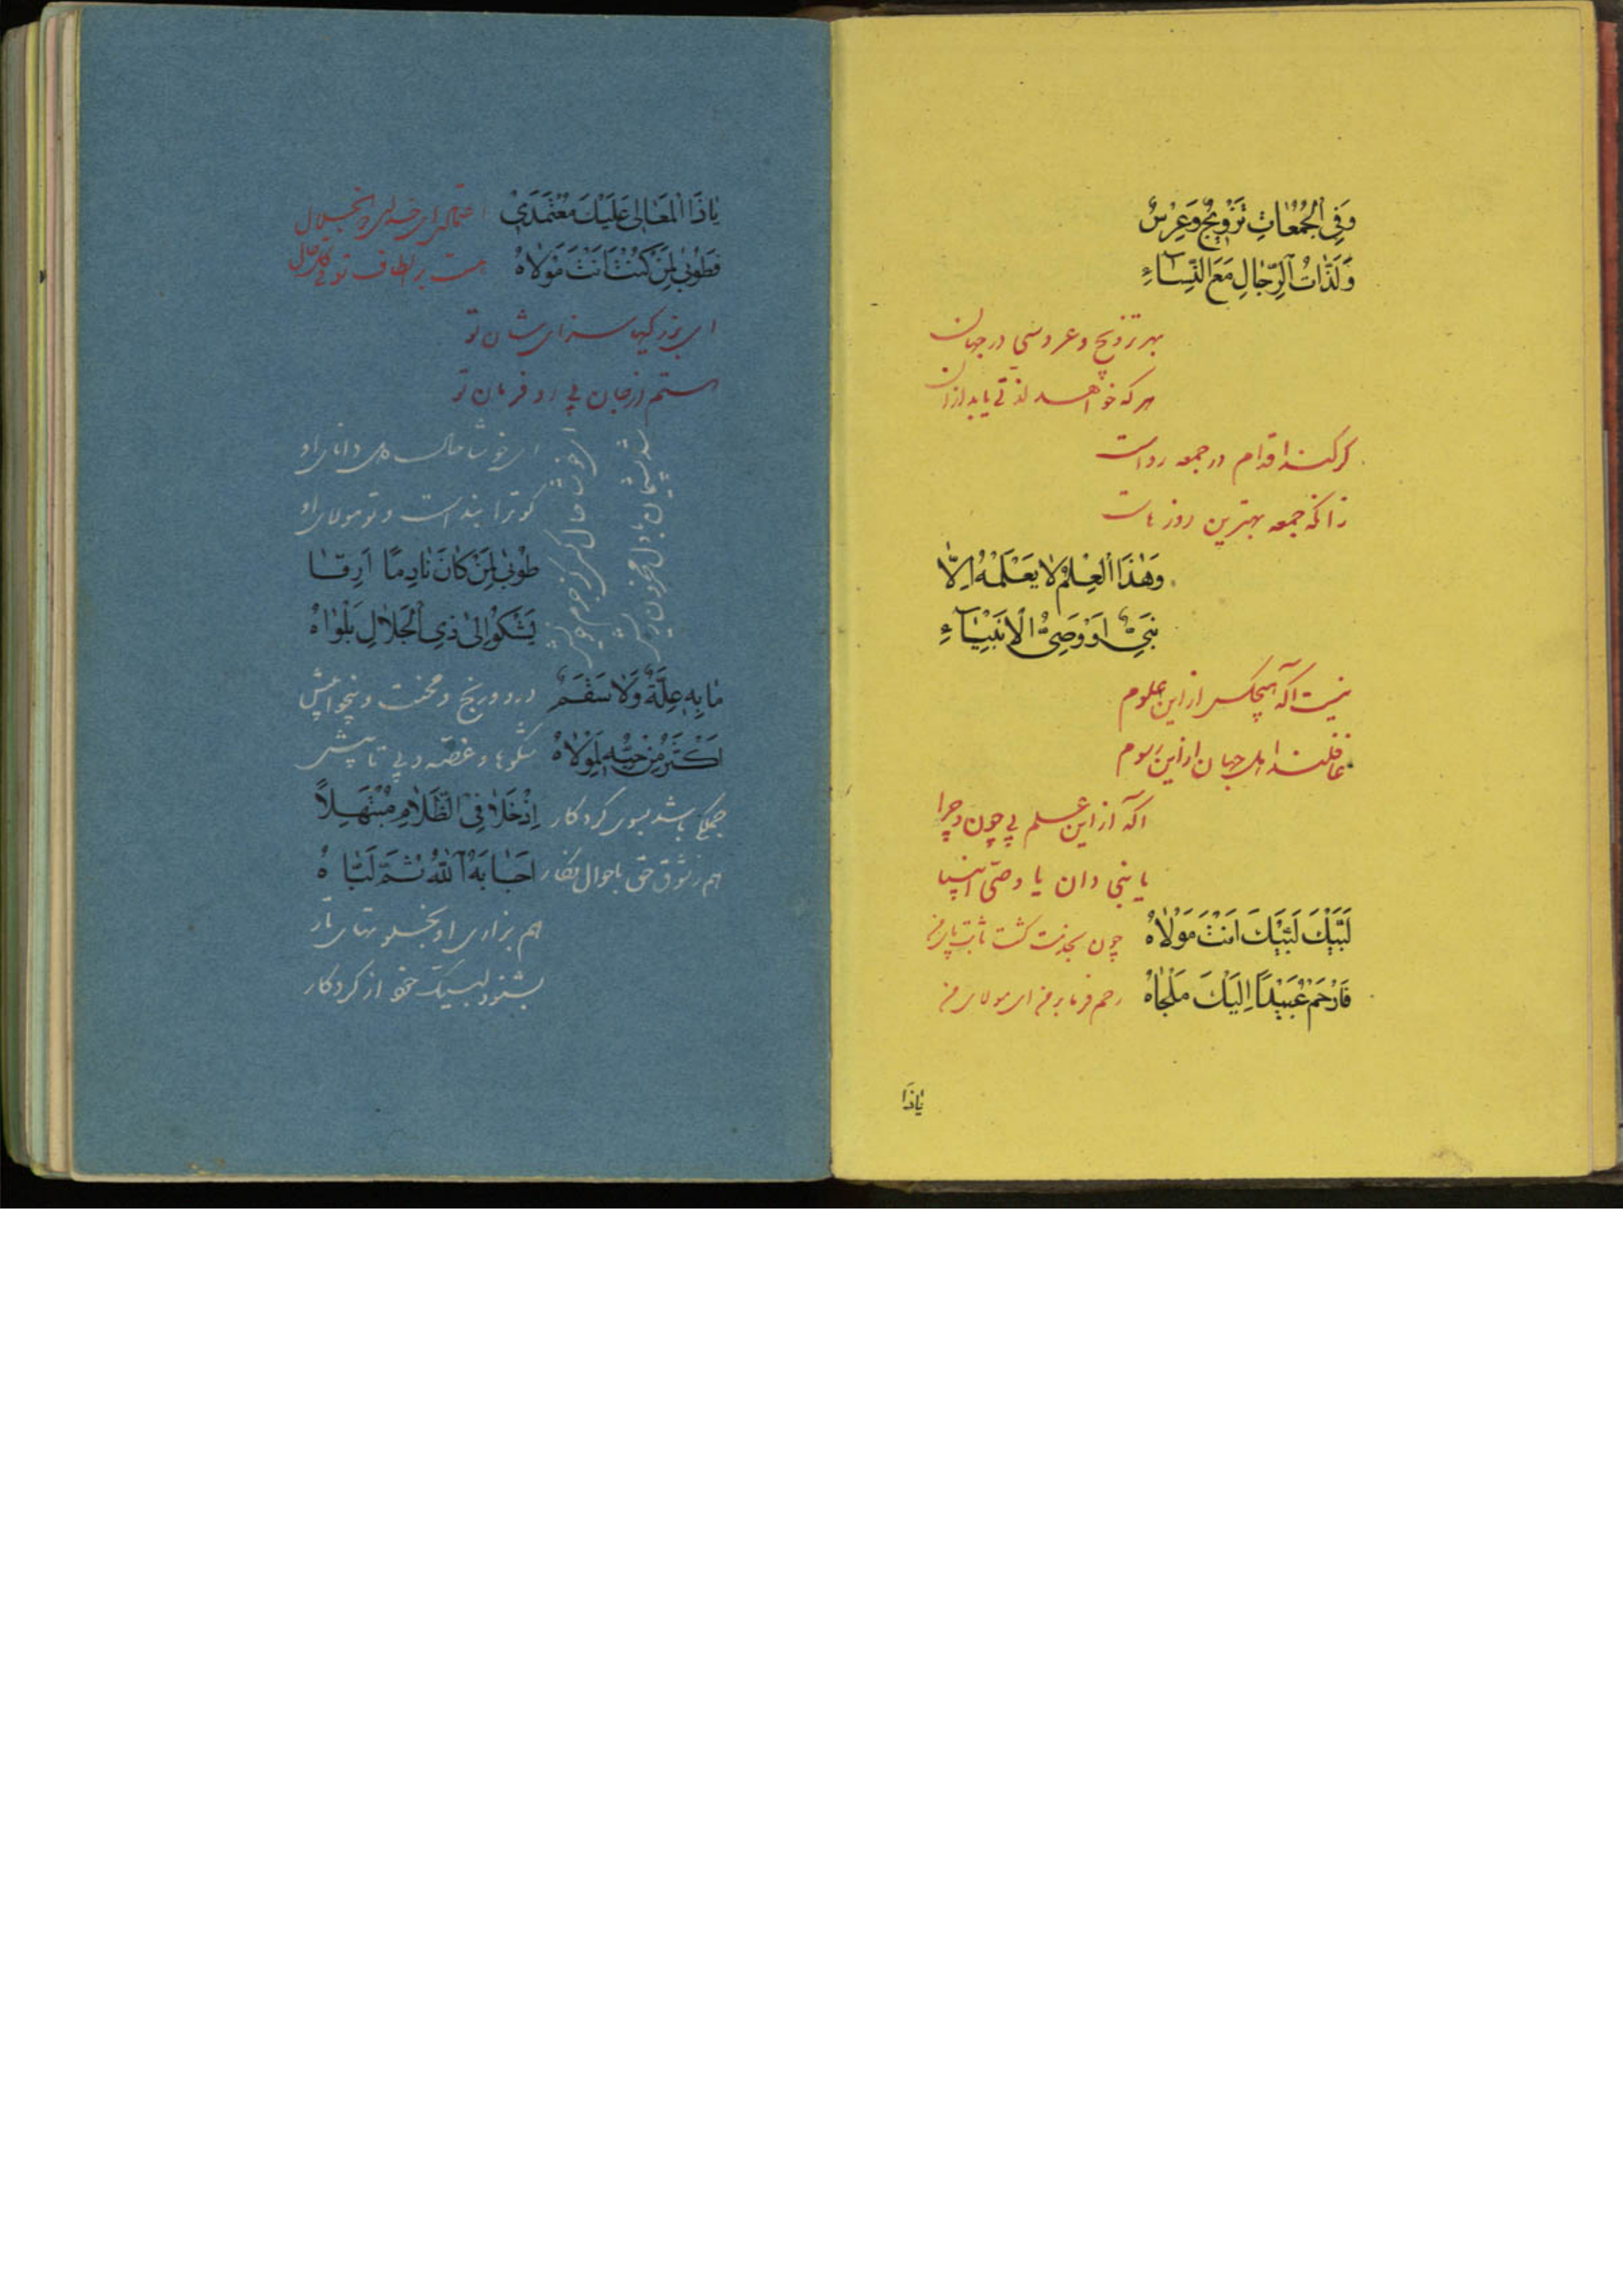 وَفِی الْجُمُعَاتِ تَزْوِیجٌ وَعِرْسٌ
وَلَذَّاتُ الرِّجَالِ مَعَ النِّسَآءِ
بهر تزویج و عروسی در جهان
هر که خواهد لذتی یابد از آن
گر کند اقدام در جمعه رواست
زانکه جمعه بهترین روزهاست
وَهٰذَا الْعِلْمُ لَا یَعْلَمُهُ اِلَّا
نَبِیٌّ اَوْ وَصِیُّ الْاَنْبِیَآءِ
نیست آگه هیچکس از این علوم
غافلند اهل جهان از این رسوم
آگه از این علم بی چون و چرا
یا نبی دان یا وصی انبیا
لَبَّیْكَ لَبَّیْكَ اَنْتَ مَوْلَاهُ
چون بخدمت گشت ثابت پای من
فَارْحَمْ عُبَیْدًا اِلَیْكَ مَلْجَاهُ
رحم فرما بر من ای مولای من
یَاذَا
یَاذَا الْمَعَالِی عَلَیْكَ مُعْتَمَدِی
ای
فَطُوبٰی لِمَنْ كُنْتَ اَنْتَ مَوْلَاهُ
هست بر الطاف تو در
ای بزرگیها سزای شان تو
هستم از جان پی رو فرمان تو
ای خوشا حال دل دانای او
کو ترا بنده است و تو مولای او
طُوبٰی لِمَنْ كَانَ نَادِمًا اَرِقًا
یَشْكُو اِلٰی ذِی الْجَلَالِ بَلْوَاهُ
ای خوشا حال کسی کز جرم خویش
شد پشیمان با دل محزون ریش
مَا بِهِ عِلَّةٌ وَلَا سَقَمٌ
درد و رنج و محنت و بیخوابیش
اَكْثَرُ مِنْ حُبِّهِ لِمَوْلَاهُ
شکوها و غصه و بی تابیش
اِذْ خَلَا فِی الظَّلَامِ مُبْتَهِلًا
جملگی باشد بسوی کردگار
اَجَابَهُ اللّٰهُ ثُمَّ لَبَّاهُ
هم ز شوق حق باحوال
هم بزاری او بخلوتهای تار
بشنود لبیک خود از کردگار